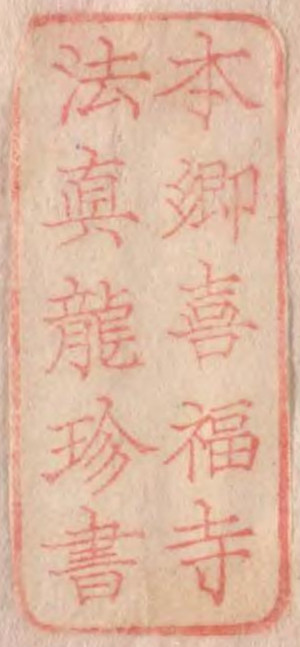 本郷喜福寺
法真龍珍書